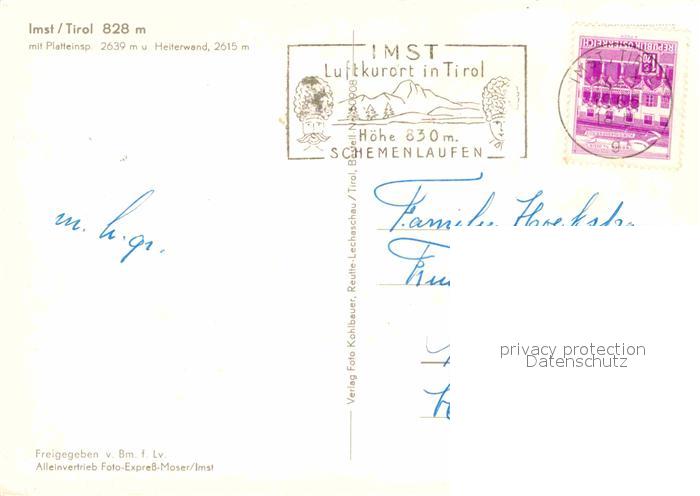 Imst/Tirol 828 m
mit Platteinsp. 2639 m u. Heiterwand, 2615 m
IMST
Luftkurort in Tirol
Höhe 830 m.
SCHEMENLAUFEN
REPUBLIK ÖSTERREICH
IMST
m. h. gr.
Familie
privacy protection
Datenschutz
Verlag Foto Kohlbauer, Reutte-Lechaschau/Tirol, Bestell-Nr.
Freigegeben v. Bm. f. Lv.
Alleinvertrieb Foto-Expreß-Moser/Imst